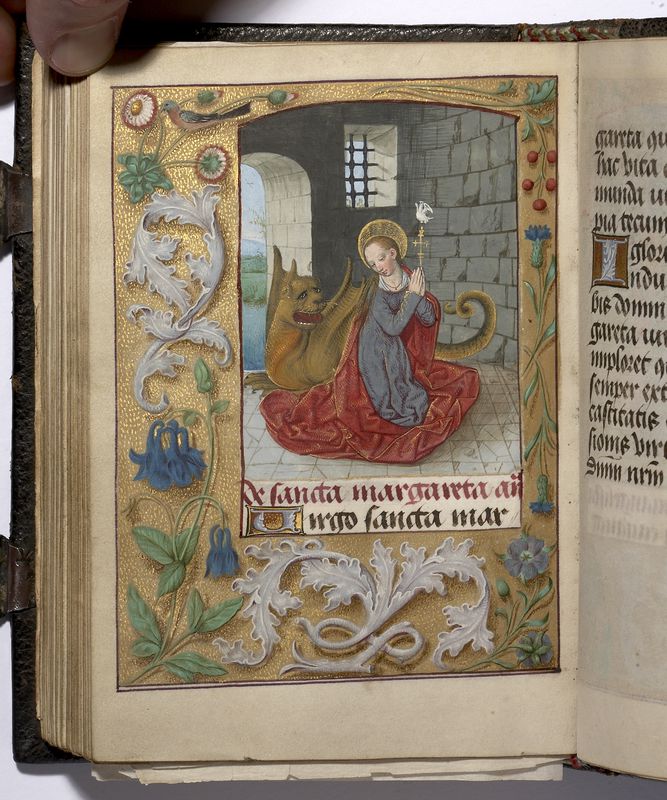 De sancta margareta añ
Virgo sancta mar
gareta qu
hac vita
munda
pia tecum
glori
Indu
bis domin
gareta vir
imploret q
semper ext
castitatis
sionis virt
Dnm nrm